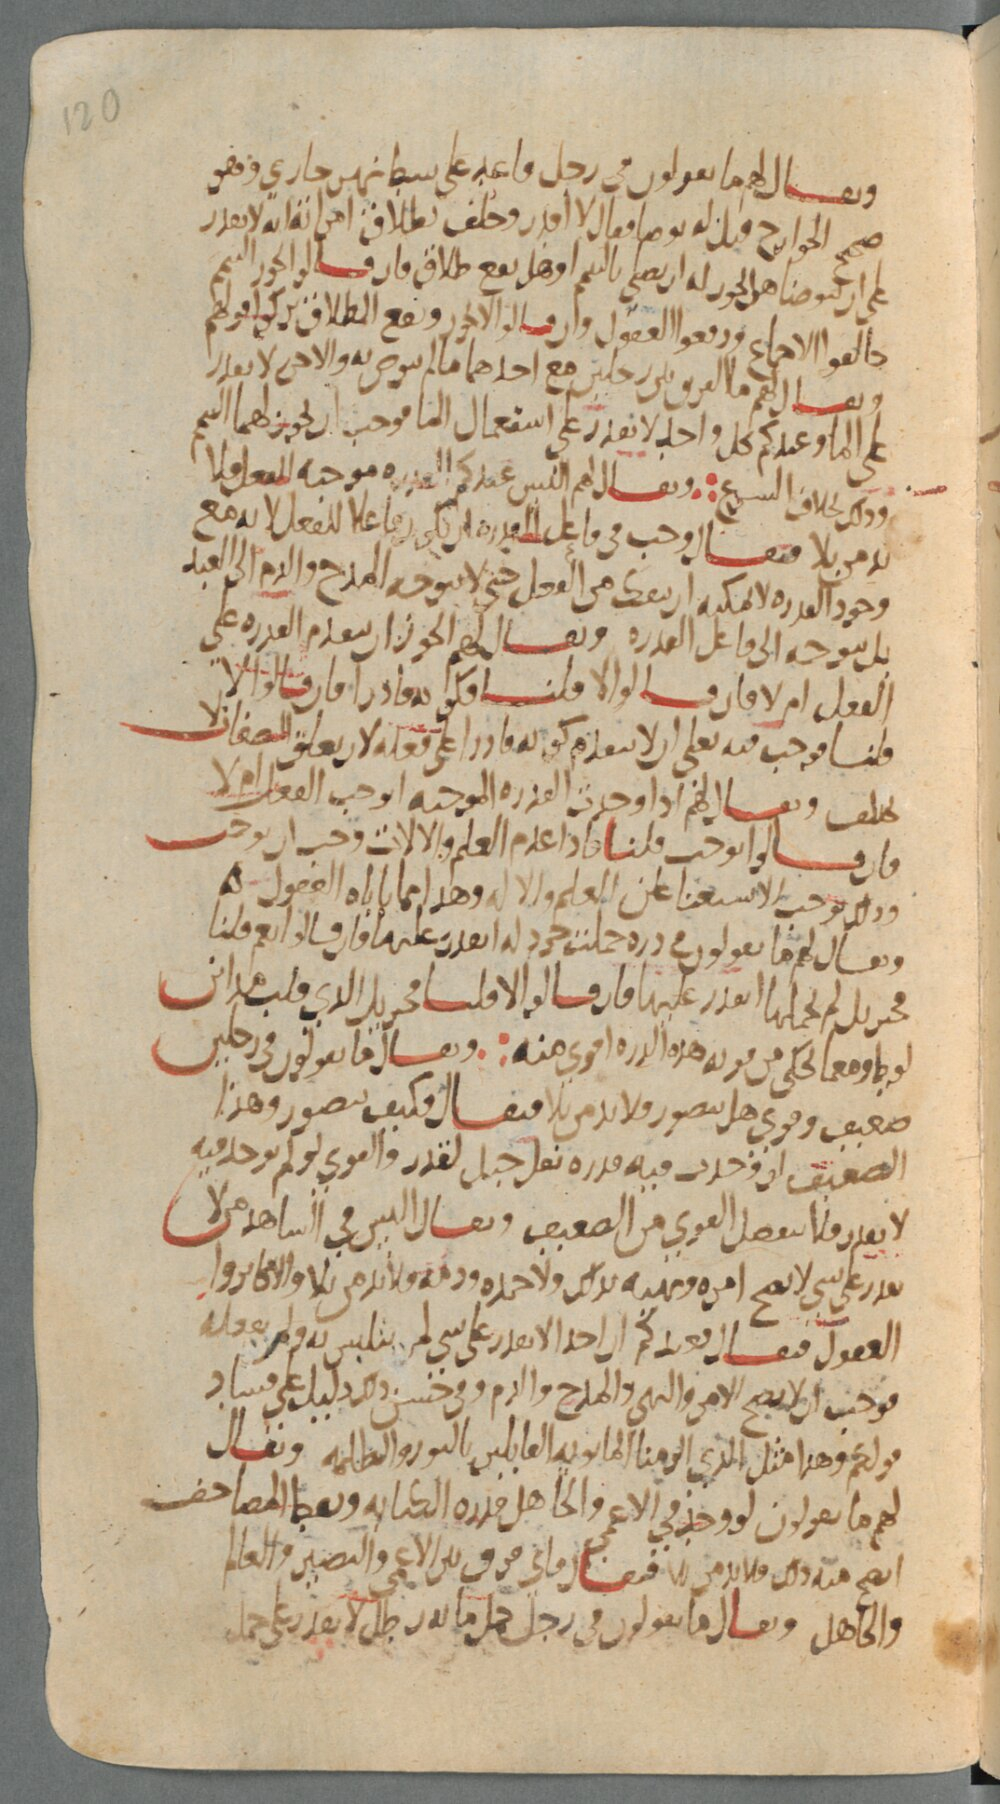 120
ويقال لهم ما يقولون في رجل قاعد على شط نهر جاري وهو
صحيح الجوارح قيل له توضا فقال لا اقدر وحلف بطلاق امراته انه لا يقدر
على ان يتوضا هل يجوز له ان يصلي بالتيمم او هل يقع طلاق فان قالوا يجوز التيمم
خالفوا الاجماع ودفعوا العقول وان قالوا لا يجوز ويقع الطلاق تركوا قولهم
ويقال لهم ما الفرق بين رجلين مع احدهما ما لم يتوض به والاخر لا يقدر
على الما وعندكم كل واحد لا يقدر على استعمال الما فوجب ان يجوز لهما التيمم
وذلك خلاف الشرع ويقال لهم اليس عندكم القدره موجبه للفعل ولا
بد من بلا فيقال وجب في فاعل القدره ان يكون فاعلا للفعل لانه مع
وجود القدره لا يمكنه ان ينفك من الفعل حتى لا يتوجه المدح والذم الى العبد
بل يتوجه الى فاعل القدره ويقال لهم ايجوز ان يتقدم القدره على
الفعل ام لا فان قالوا لا قلنا فكونه قادرا فان قالوا لا
قلنا فوجب فيه تعالى ان لا يتقدم كونه قادرا على فعله لان تعلق الصفات لا
يختلف ويقال لهم اذا وجدت القدره الموجبه ايوجب الفعل ام لا
فان قالوا يوجب قلنا فاذا عدم العلم والالات وجب ان يوجب
وذلك يوجب الاستغنا عن العلم والاله وهذا مما ياباه العقول
ويقال لهم ما يقولون في دره حملت خردله ايقدر عليها فان قالوا نعم قلنا
فجبريل لم يحملها ايقدر عليها فان قالوا لا قلنا فجبريل الذي قلب مدائن
لوط ومع ما يحكى من قوته هذه الذره اقوى منه ويقال ما يقولون في رجلين
ضعيف وقوي هل يتصور ولا بد من بلا فيقال وكيف يتصور وهذا
الضعيف ان وجدت فيه قدره نقل جبل لقدر والقوي لو لم يوجد فيه
لا يقدر فلا ينفصل القوي من الضعيف ويقال اليس في الشاهد من لا
يقدر على شي لا يصح امره ونهيه بذلك ولا حمده وذمه ولا بد من بلا والا كابروا
العقول فيقال فعندكم ان احدا لا يقدر على شي لم يتلبس به ولم يفعله
فوجب ان لا يصح الامر والنهي والمدح والذم وفي حسن ذلك دليل على فساد
قولهم وهذا مثل الذي الزمنا المانويه القايلين بالنور والظلمه ويقال
لهم ما يقولون لو وجد في الاعمى والجاهل قدره الكتابه ونقط المصاحف
ايصح منه ذلك ولا بد من بلا فيقال فاي فرق بين الاعمى والبصير والعالم
والجاهل ويقال ما يقولون في رجل حمل مايه رطل لا يقدر على حمل